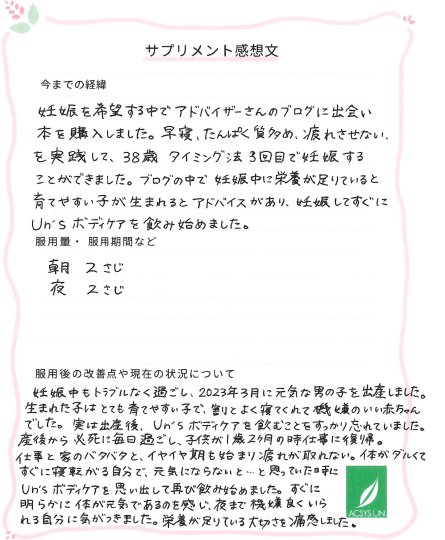 サプリメント感想文
今までの経緯
妊娠を希望する中でアドバイザーさんのブログに出会い
本を購入しました。早寝、たんぱく質多め、疲れさせない、
を実践して、38歳 タイミング法3回目で妊娠する
ことができました。ブログの中で妊娠中に栄養が足りていると
育てやすい子が生まれるとアドバイスがあり、妊娠してすぐに
Un's ボディケアを飲み始めました。
服用量・服用期間など
朝 2さじ
夜 2さじ
服用後の改善点や現在の状況について
妊娠中もトラブルなく過ごし、2023年3月に元気な男の子を出産しました。
生まれた子はとても育てやすい子で、割りとよく寝てくれて機嫌のいい赤ちゃん
でした。実は出産後、Un'sボディケアを飲むことをすっかり忘れていました。
産後から必死に毎日過ごし、子供が1歳2ヶ月の時仕事に復帰。
仕事と家のバタバタと、イヤイヤ期も始まり疲れが取れない。体がダルくて
すぐに寝転がる自分で、元気にならないと…と思っていた時に
Un'sボディケアを思い出して再び飲み始めました。すぐに
明らかに体が元気であるのを感じ、夜まで機嫌良くいら
れる自分に気がつきました。栄養が足りている大切さを痛感しました。
ACSYSUN